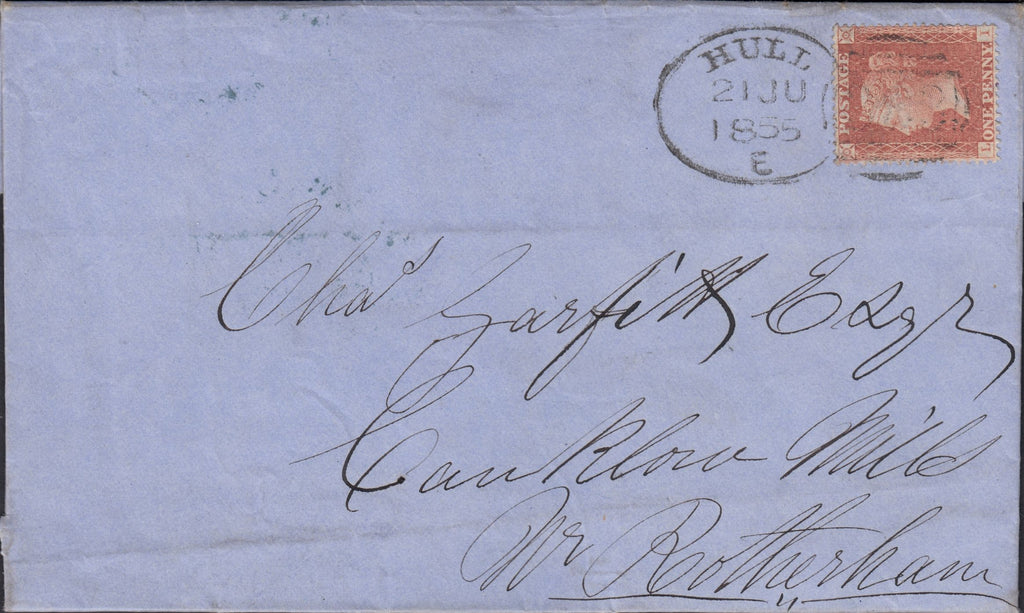 HULL
21 JU
1855
E
POSTAGE
ONE PENNY
L I
Chas Garfitt Esqr
Canklow Mills
Nr Rotherham